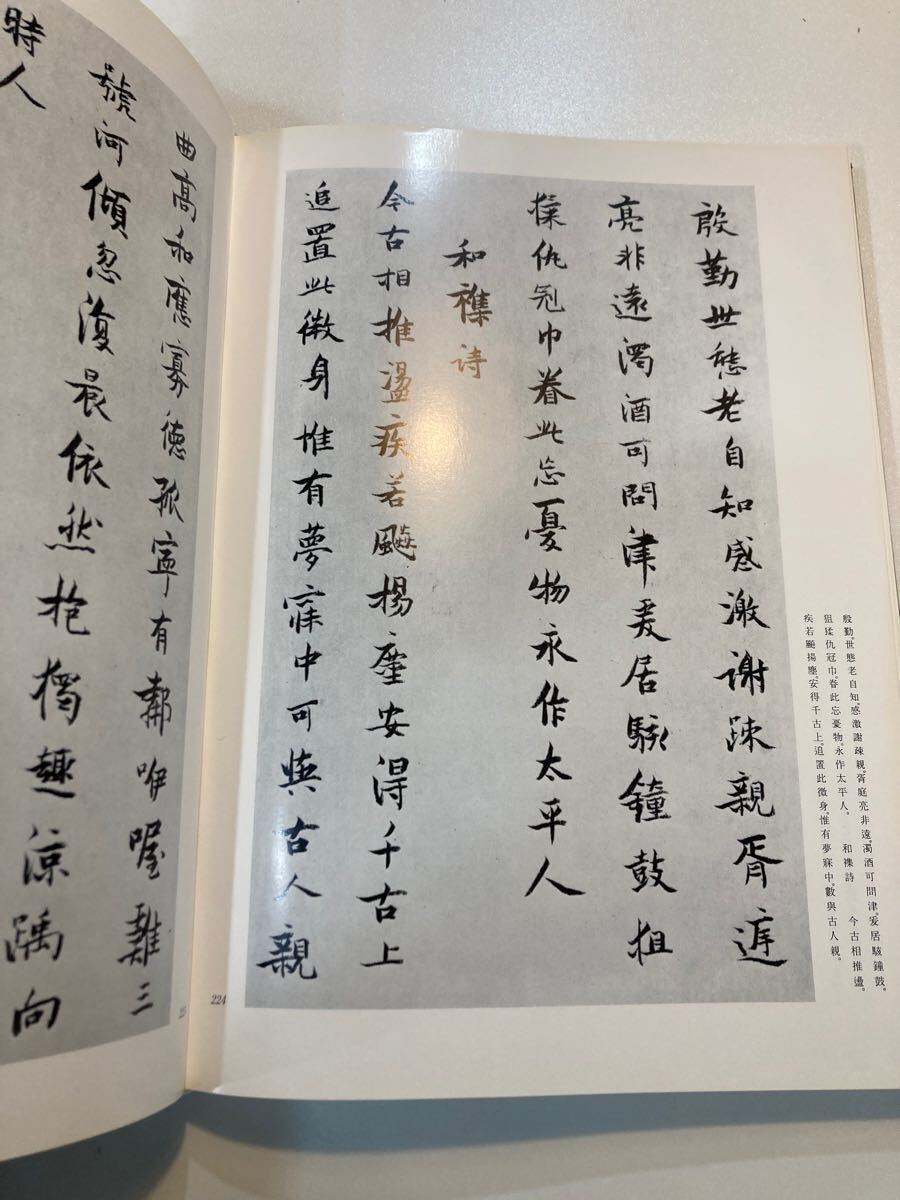 殷勤。世態老自知。感激謝疎親。胥庭亮非遠。濁酒可問津。爰居駭鐘鼓。
狙猱仇冠巾。眷此忘憂物。永作太平人。 和襍詩 今古相推盪。
疾若飈揚塵。安得千古上。追置此微身。惟有夢寐中。數與古人親。
殷勤世態老自知感激謝疎親胥庭
亮非遠濁酒可問津爰居駭鐘鼓狙
猱仇冠巾眷此忘憂物永作太平人
和襍詩
今古相推盪疾若飈揚塵安得千古上
追置此微身惟有夢寐中可與古人親
224
曲高和應寡德孤寧有鄰咿喔雞三
號河傾忽復晨依然抱獨趣涼踽向
時人